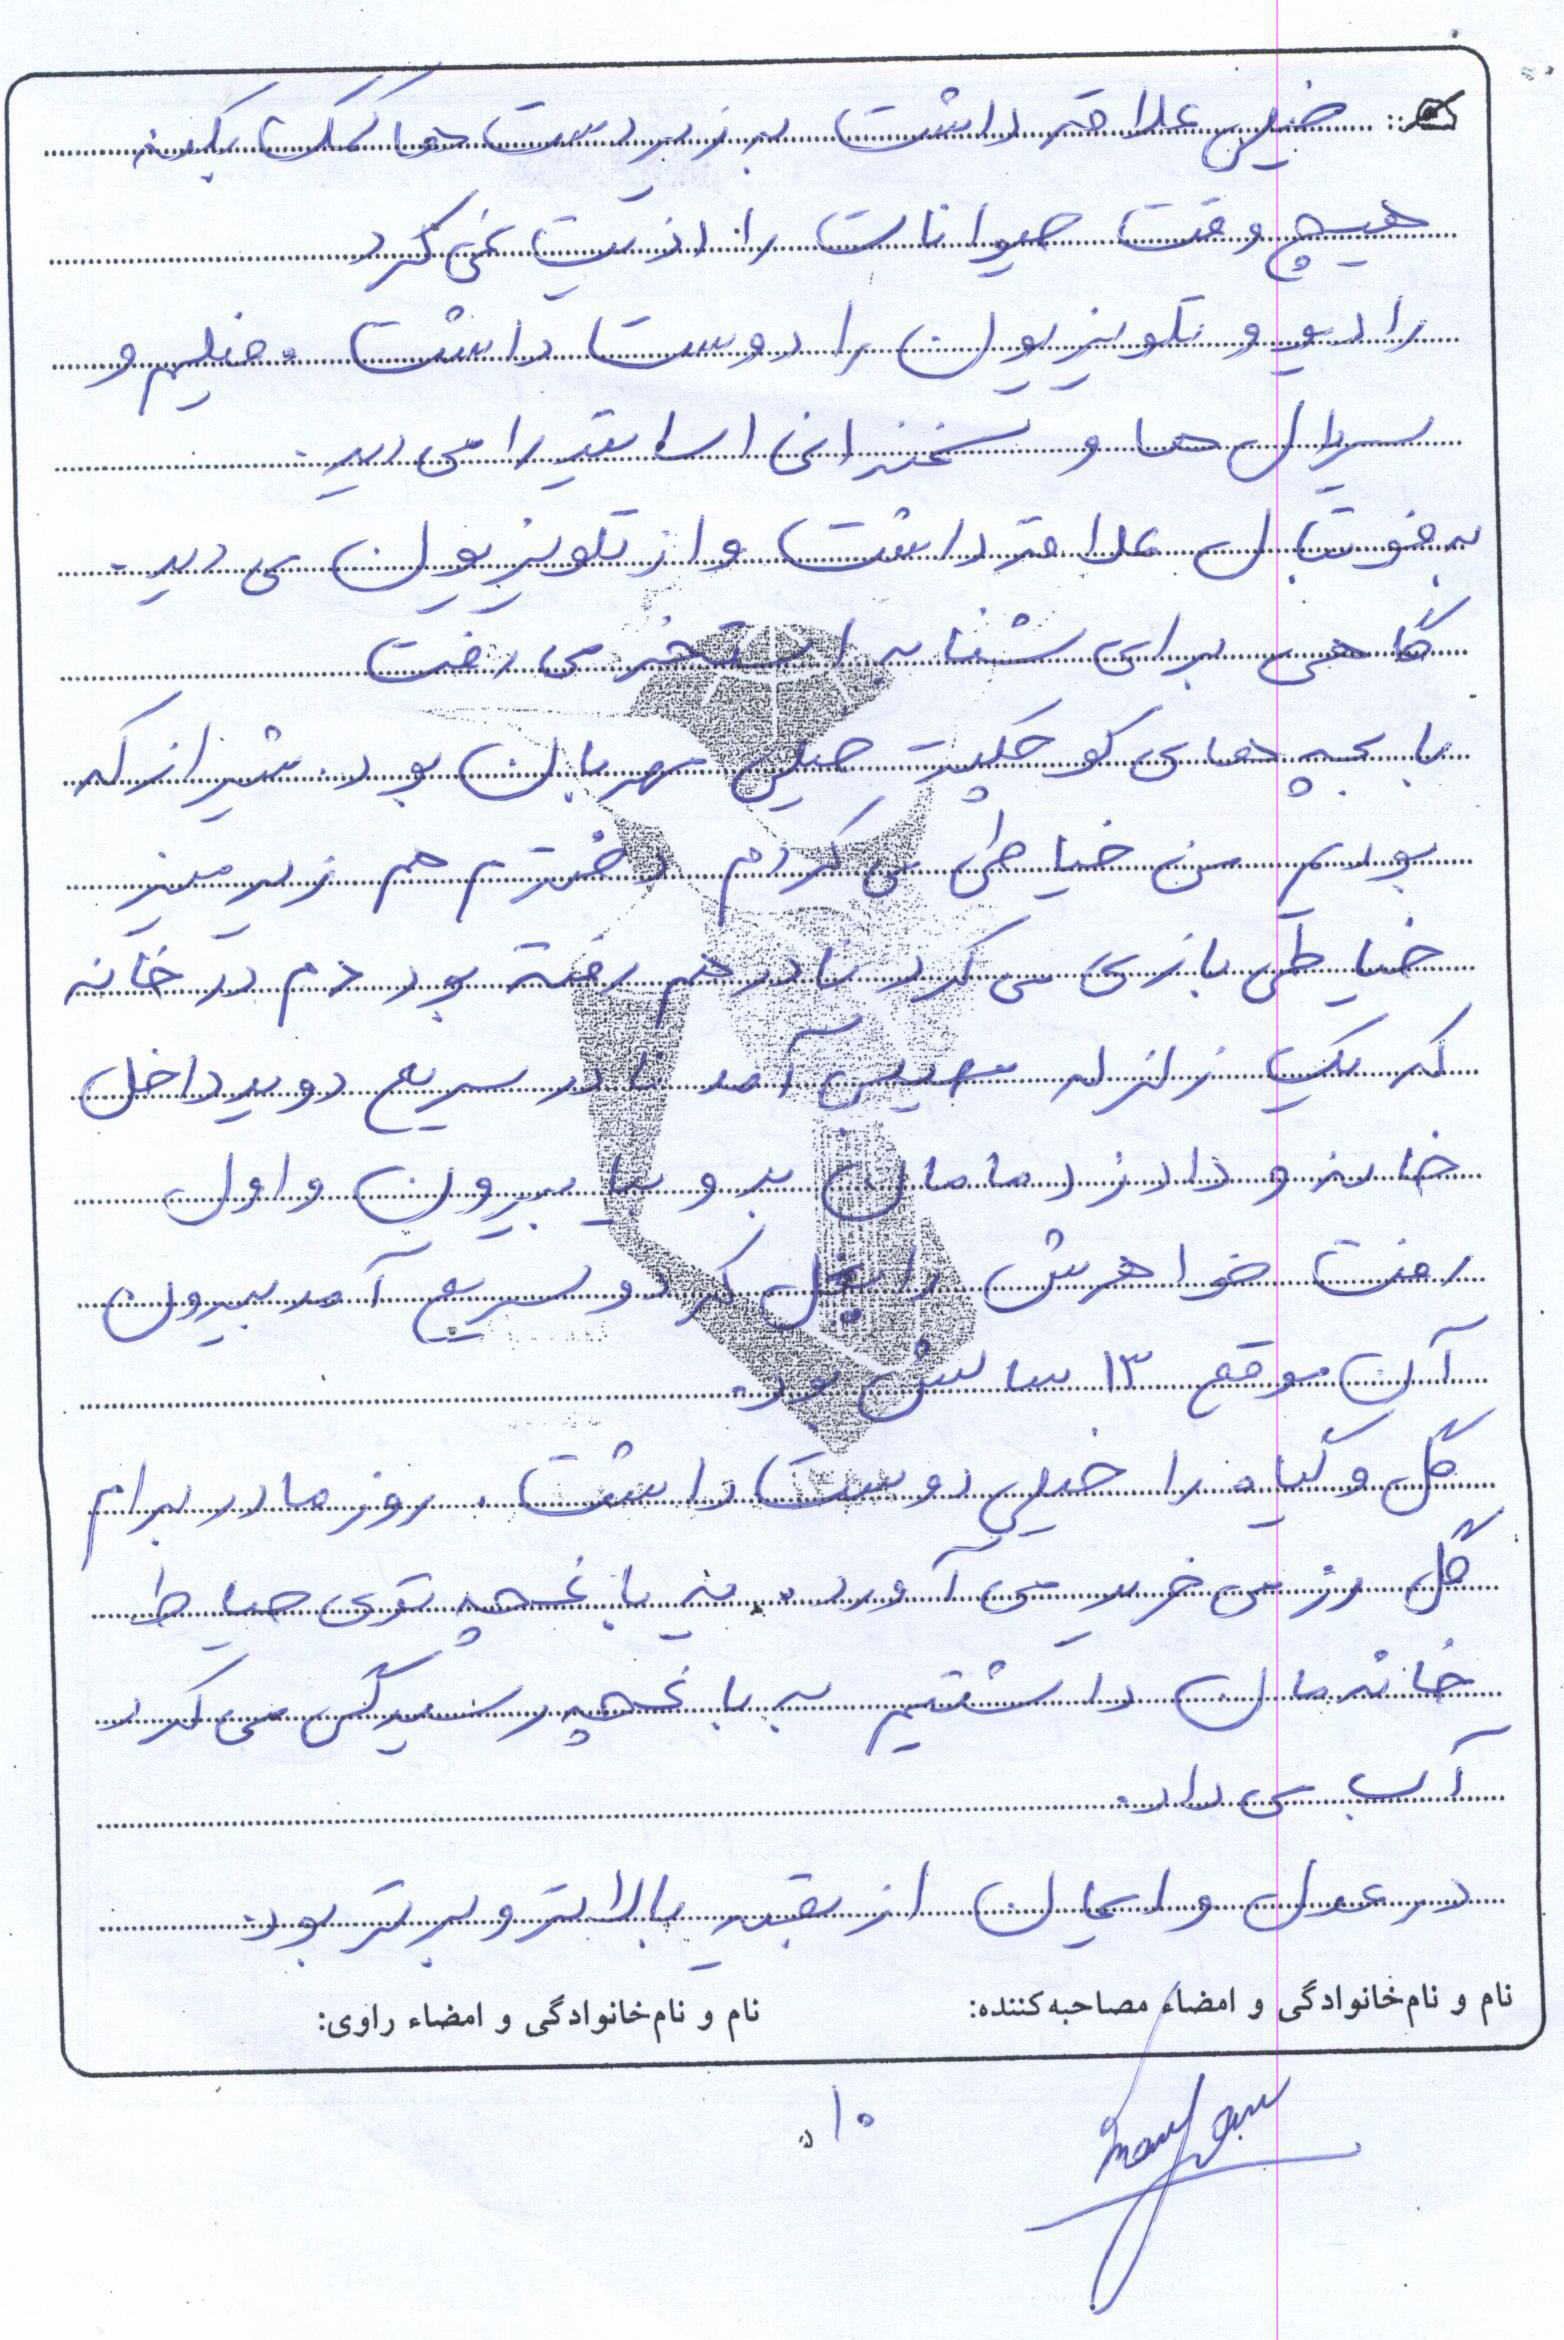 خیلی علاقه داشت به زیردست ها کمک بکنه
هیچ وقت حیوانات را اذیت نمی کرد
رادیو و تلویزیون را دوست داشت. فیلم و
سریال ها و سخنرانی اساتید را می دید.
به فوتبال علاقه داشت و از تلویزیون می دید.
گاهی برای شنا به استخر می رفت
با بچه های کوچکتر خیلی مهربان بود. شیراز که
بودیم من خیاطی می کردم دخترم هم زیر میز
خیاطی بازی می کرد نادر هم رفته بود دم در خانه
که یک زلزله مهیبی آمد نادر سریع دوید داخل
خانه و داد زد مامان بدو بیا بیرون و اول
رفت خواهرش را بغل کرد و سریع آمد بیرون
آن موقع ۱۳ سالش بود.
گل و گیاه را خیلی دوست داشت. روز مادر برام
گل رز می خرید می آورد. یه باغچه توی حیاط
خانه مان داشتیم به باغچه رسیدگی می کرد
آب می داد.
در عدل و ایمان از بقیه بالاتر و برتر بود.
نام و نام‌خانوادگی و امضاء مصاحبه‌کننده:
نام و نام‌خانوادگی و امضاء راوی:
۱۰